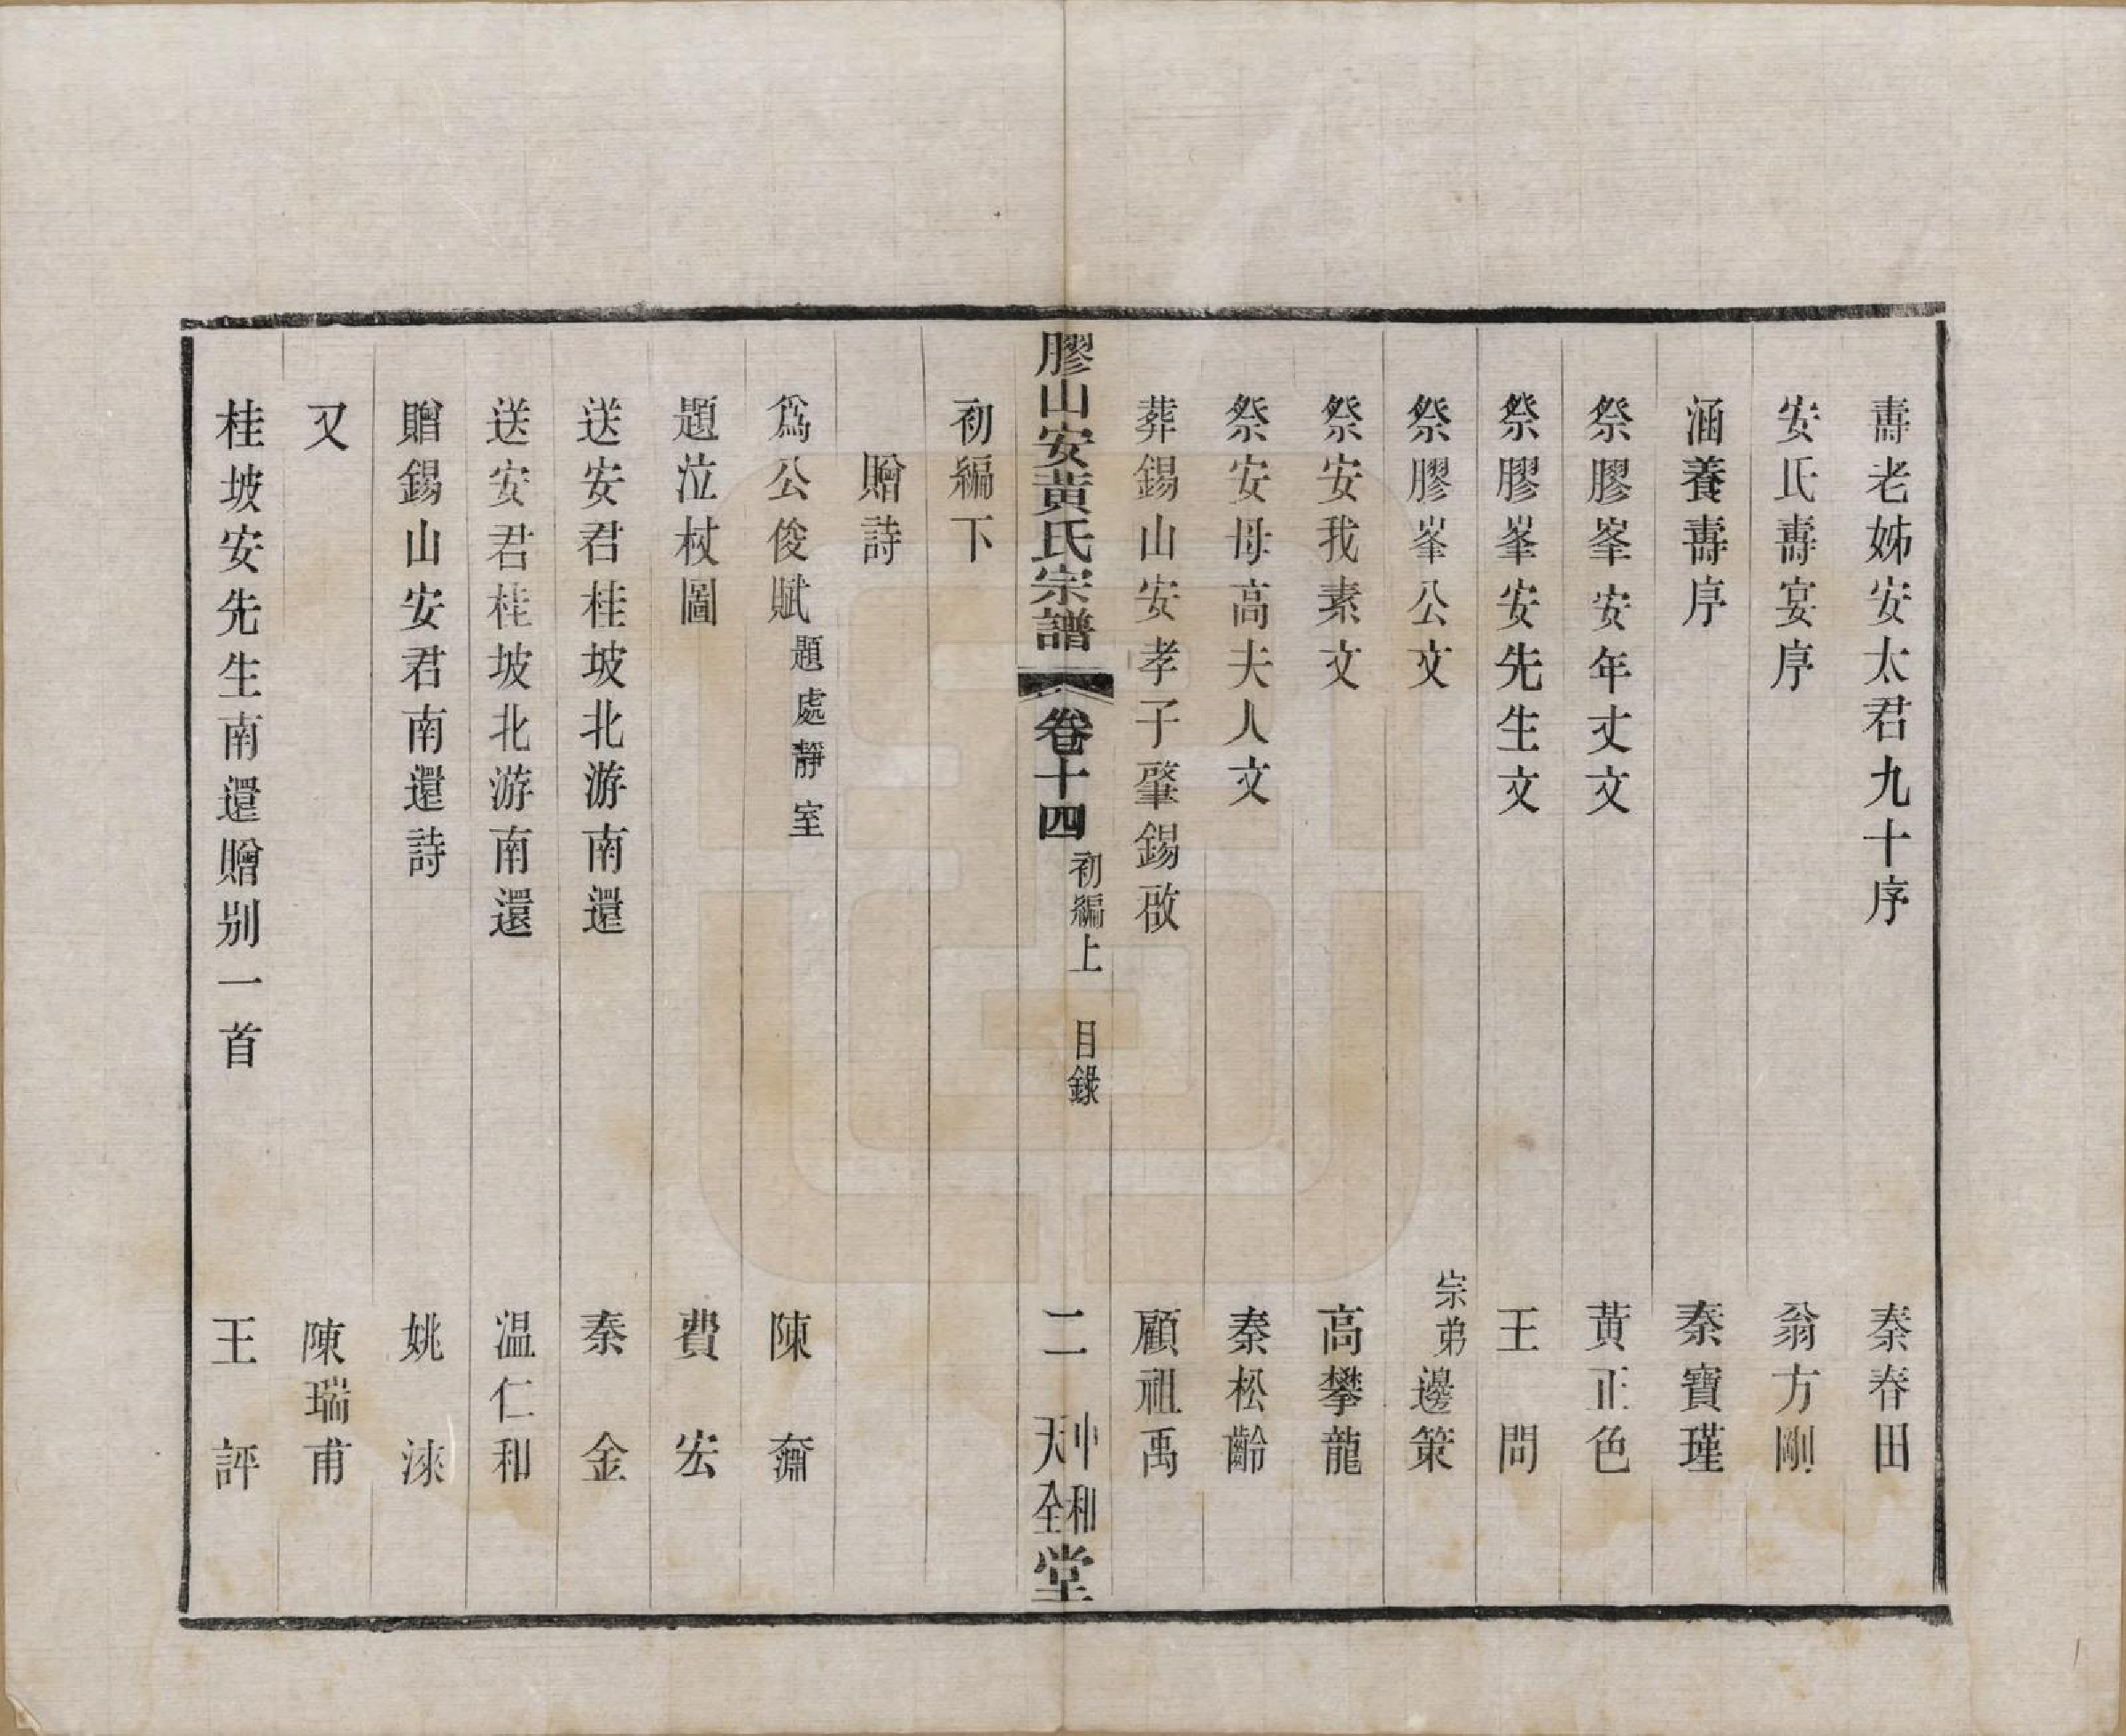 壽老姊安太君九十序 秦春田
安氏壽宴序 翁方剛
涵養壽序 秦寶瑾
祭膠峯安年丈文 黃正色
祭膠峯安先生文 王問
祭膠峯公文 宗弟邊策
祭安我素文 高攀龍
祭安母高夫人文 秦松齡
葬錫山安孝子肇錫啟 顧祖禹
膠山安黃氏宗譜 卷十四 初編上 目錄 二 中和天全堂
初編下
贈詩
爲公俊賦題處靜室 陳奫
題泣杖圖 費宏
送安君桂坡北游南還 秦金
送安君桂坡北游南還 温仁和
贈錫山安君南還詩 姚淶
又 陳瑞甫
桂坡安先生南還贈別一首 王評